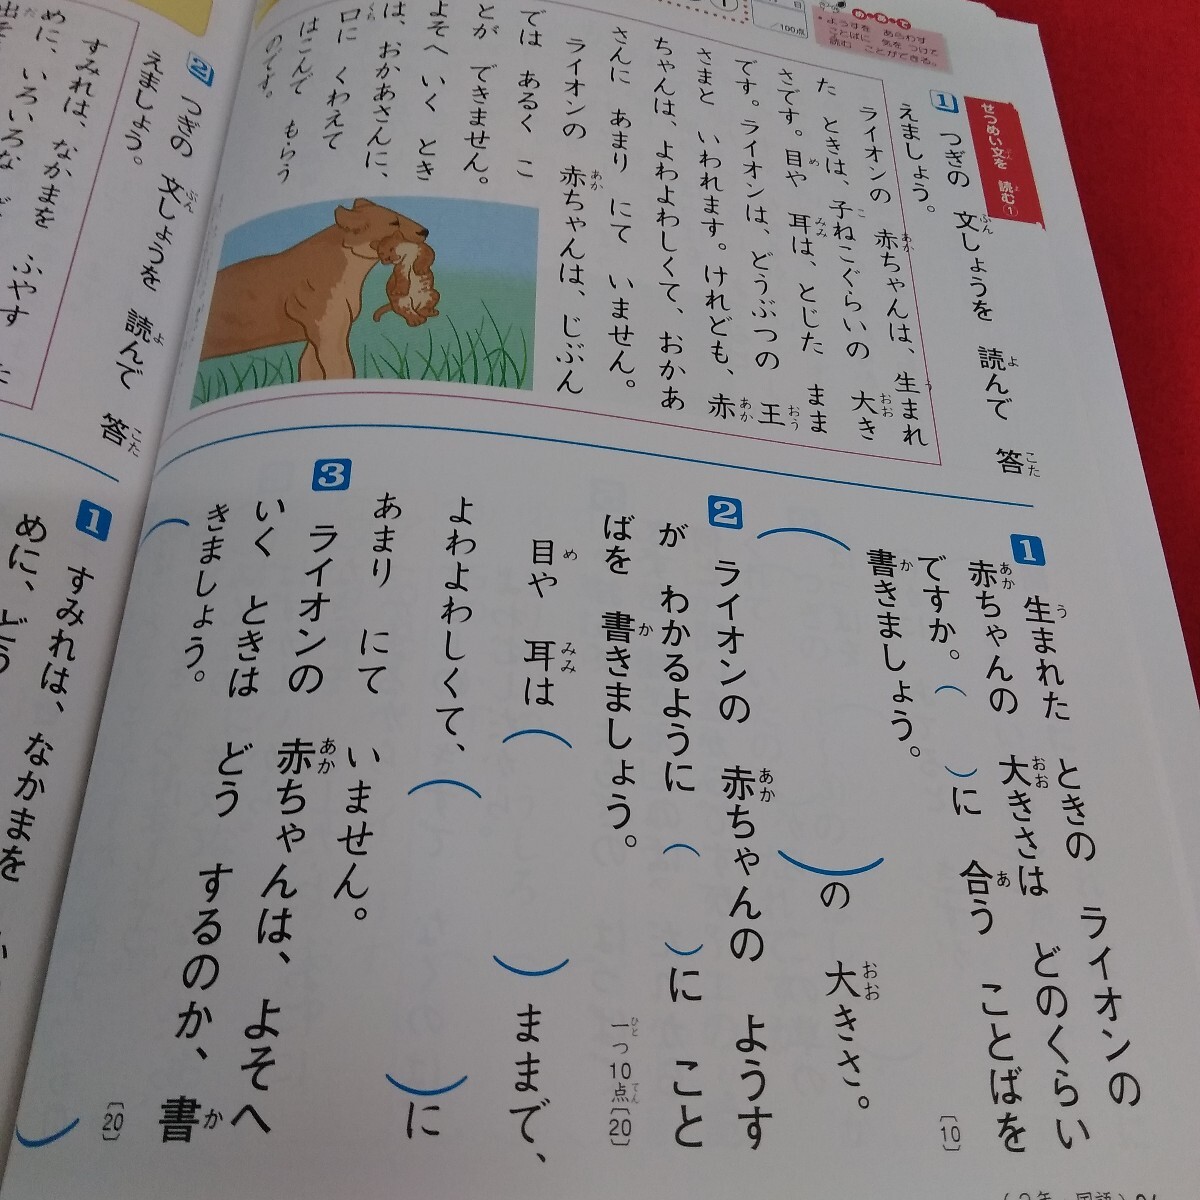 めあて
・ようすを あらわす
ことばに 気を つけて
読む ことができる。
/100点
せつめい文を 読む①
1 つぎの 文しょうを 読んで 答
えましょう。
ライオンの 赤ちゃんは、生まれ
た ときは、子ねこぐらいの 大き
さです。目や 耳は、とじた まま
です。ライオンは、どうぶつの 王
さまと いわれます。けれども、赤
ちゃんは、よわよわしくて、おかあ
さんに あまり にて いません。
ライオンの 赤ちゃんは、じぶん
では あるく こ
とが できません。
よそへ いく とき
は、おかあさんに、
口に くわえて
はこんで もらう
のです。
1 生まれた ときの ライオンの
赤ちゃんの 大きさは どのくらい
ですか。( )に 合う ことばを
書きましょう。
[10]
( )の 大きさ。
2 ライオンの 赤ちゃんの ようす
が わかるように ( )に こと
ばを 書きましょう。
一つ10点[20]
目や 耳は ( ) ままで、
よわよわしくて、( )に
あまり にて いません。
3 ライオンの 赤ちゃんは、よそへ
いく ときは どう するのか、書
きましょう。
[20]
2 つぎの 文しょうを 読んで 答
えましょう。
すみれは、なかまを ふやす た
めに、いろいろな
1 すみれは、なかまを
めに、どう